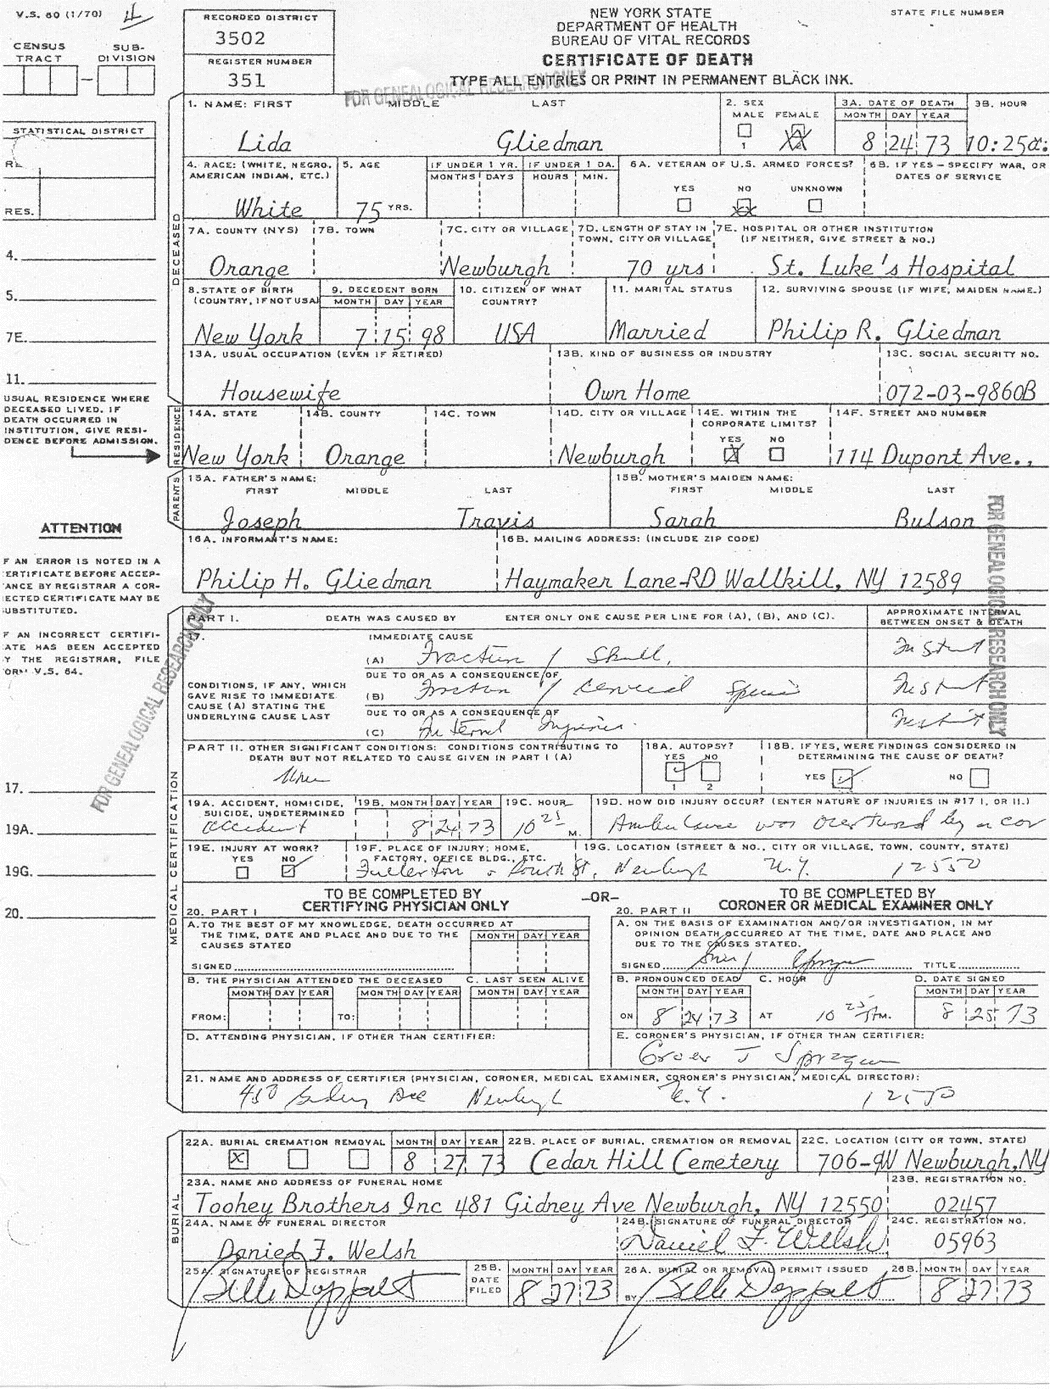 V.S. 60 (1/70)
4
CENSUS TRACT
SUB-DIVISION
STATISTICAL DISTRICT
RES.
4.
5.
7E.
11.
USUAL RESIDENCE WHERE
DECEASED LIVED. IF
DEATH OCCURRED IN
INSTITUTION, GIVE RESI-
DENCE BEFORE ADMISSION.
ATTENTION
F AN ERROR IS NOTED IN A
ERTIFICATE BEFORE ACCEP-
ANCE BY REGISTRAR A COR-
ECTED CERTIFICATE MAY BE
UBSTITUTED.
F AN INCORRECT CERTIFI-
ATE HAS BEEN ACCEPTED
Y THE REGISTRAR, FILE
ORM V.S. 64.
17.
19A.
19G.
20.
RECORDED DISTRICT
3502
REGISTER NUMBER
351
NEW YORK STATE
DEPARTMENT OF HEALTH
BUREAU OF VITAL RECORDS
CERTIFICATE OF DEATH
TYPE ALL ENTRIES OR PRINT IN PERMANENT BLACK INK.
STATE FILE NUMBER
FOR GENEALOGICAL RESEARCH ONLY
DECEASED
1. NAME: FIRST MIDDLE LAST
Lida Gliedman
2. SEX
MALE FEMALE
1
3A. DATE OF DEATH
MONTH DAY YEAR
8 24 73
3B. HOUR
10:25a.
4. RACE: (WHITE, NEGRO, AMERICAN INDIAN, ETC.)
White
5. AGE
75 YRS.
IF UNDER 1 YR.
MONTHS DAYS
IF UNDER 1 DA.
HOURS MIN.
6A. VETERAN OF U.S. ARMED FORCES?
YES NO UNKNOWN
6B. IF YES - SPECIFY WAR, OR DATES OF SERVICE
7A. COUNTY (NYS)
Orange
7B. TOWN
7C. CITY OR VILLAGE
Newburgh
7D. LENGTH OF STAY IN TOWN, CITY OR VILLAGE
70 yrs
7E. HOSPITAL OR OTHER INSTITUTION (IF NEITHER, GIVE STREET & NO.)
St. Luke's Hospital
8. STATE OF BIRTH (COUNTRY, IF NOT USA)
New York
9. DECEDENT BORN
MONTH DAY YEAR
7 15 98
10. CITIZEN OF WHAT COUNTRY?
USA
11. MARITAL STATUS
Married
12. SURVIVING SPOUSE (IF WIFE, MAIDEN NAME.)
Philip R. Gliedman
13A. USUAL OCCUPATION (EVEN IF RETIRED)
Housewife
13B. KIND OF BUSINESS OR INDUSTRY
Own Home
13C. SOCIAL SECURITY NO.
072-03-9860B
RESIDENCE
14A. STATE
New York
14B. COUNTY
Orange
14C. TOWN
14D. CITY OR VILLAGE
Newburgh
14E. WITHIN THE CORPORATE LIMITS?
YES NO
14F. STREET AND NUMBER
114 Dupont Ave.,
PARENTS
15A. FATHER'S NAME:
FIRST MIDDLE LAST
Joseph Travis
15B. MOTHER'S MAIDEN NAME:
FIRST MIDDLE LAST
Sarah Bulson
16A. INFORMANT'S NAME:
Philip H. Gliedman
16B. MAILING ADDRESS: (INCLUDE ZIP CODE)
Haymaker Lane-RD Wallkill, NY 12589
FOR GENEALOGICAL RESEARCH ONLY
FOR GENEALOGICAL RESEARCH ONLY
MEDICAL CERTIFICATION
PART I. DEATH WAS CAUSED BY ENTER ONLY ONE CAUSE PER LINE FOR (A), (B), AND (C).
APPROXIMATE INTERVAL BETWEEN ONSET & DEATH
17.
IMMEDIATE CAUSE
(A) Fracture / Skull,
Instant
CONDITIONS, IF ANY, WHICH
GAVE RISE TO IMMEDIATE
CAUSE (A) STATING THE
UNDERLYING CAUSE LAST
DUE TO OR AS A CONSEQUENCE OF
(B) Fracture / Cervical Spine
Instant
DUE TO OR AS A CONSEQUENCE OF
(C) Internal Injuries.
Instant
PART II. OTHER SIGNIFICANT CONDITIONS: CONDITIONS CONTRIBUTING TO DEATH BUT NOT RELATED TO CAUSE GIVEN IN PART I (A)
None
18A. AUTOPSY?
YES NO
1 2
18B. IF YES, WERE FINDINGS CONSIDERED IN DETERMINING THE CAUSE OF DEATH?
YES NO
19A. ACCIDENT, HOMICIDE, SUICIDE, UNDETERMINED
accident
19B. MONTH DAY YEAR
8 24 73
19C. HOUR
10 25 M.
19D. HOW DID INJURY OCCUR? (ENTER NATURE OF INJURIES IN #17 I, OR II.)
Ambulance was overturned by a car
19E. INJURY AT WORK?
YES NO
19F. PLACE OF INJURY: HOME, FACTORY, OFFICE BLDG., ETC.
19G. LOCATION (STREET & NO., CITY OR VILLAGE, TOWN, COUNTY, STATE)
Fullerton & South St, Newburgh N.Y. 12550
TO BE COMPLETED BY
CERTIFYING PHYSICIAN ONLY
-OR-
TO BE COMPLETED BY
CORONER OR MEDICAL EXAMINER ONLY
20. PART I
A. TO THE BEST OF MY KNOWLEDGE, DEATH OCCURRED AT THE TIME, DATE AND PLACE AND DUE TO THE CAUSES STATED
MONTH DAY YEAR
SIGNED
B. THE PHYSICIAN ATTENDED THE DECEASED
MONTH DAY YEAR MONTH DAY YEAR
FROM: TO:
C. LAST SEEN ALIVE
MONTH DAY YEAR
D. ATTENDING PHYSICIAN, IF OTHER THAN CERTIFIER:
20. PART II
A. ON THE BASIS OF EXAMINATION AND/OR INVESTIGATION, IN MY OPINION DEATH OCCURRED AT THE TIME, DATE AND PLACE AND DUE TO THE CAUSES STATED.
SIGNED TITLE
B. PRONOUNCED DEAD
MONTH DAY YEAR
ON 8 24 73
C. HOUR
AT 10 25 A M.
D. DATE SIGNED
MONTH DAY YEAR
8 25 73
E. CORONER'S PHYSICIAN, IF OTHER THAN CERTIFIER:
21. NAME AND ADDRESS OF CERTIFIER (PHYSICIAN, CORONER, MEDICAL EXAMINER, CORONER'S PHYSICIAN, MEDICAL DIRECTOR):
Ave Newburgh N.Y. 12550
BURIAL
22A. BURIAL CREMATION REMOVAL
MONTH DAY YEAR
8 27 73
22B. PLACE OF BURIAL, CREMATION OR REMOVAL
Cedar Hill Cemetery
22C. LOCATION (CITY OR TOWN, STATE)
706-9W Newburgh, NY
23A. NAME AND ADDRESS OF FUNERAL HOME
Toohey Brothers Inc 481 Gidney Ave Newburgh, NY 12550
23B. REGISTRATION NO.
02457
24A. NAME OF FUNERAL DIRECTOR
Daniel F. Welsh
24B. (SIGNATURE OF FUNERAL DIRECTOR
Daniel F. Welsh
24C. REGISTRATION NO.
05963
25A. SIGNATURE OF REGISTRAR
25B. DATE FILED
MONTH DAY YEAR
8 27 73
26A. BURIAL OR REMOVAL PERMIT ISSUED
BY
26B. MONTH DAY YEAR
8 27 73